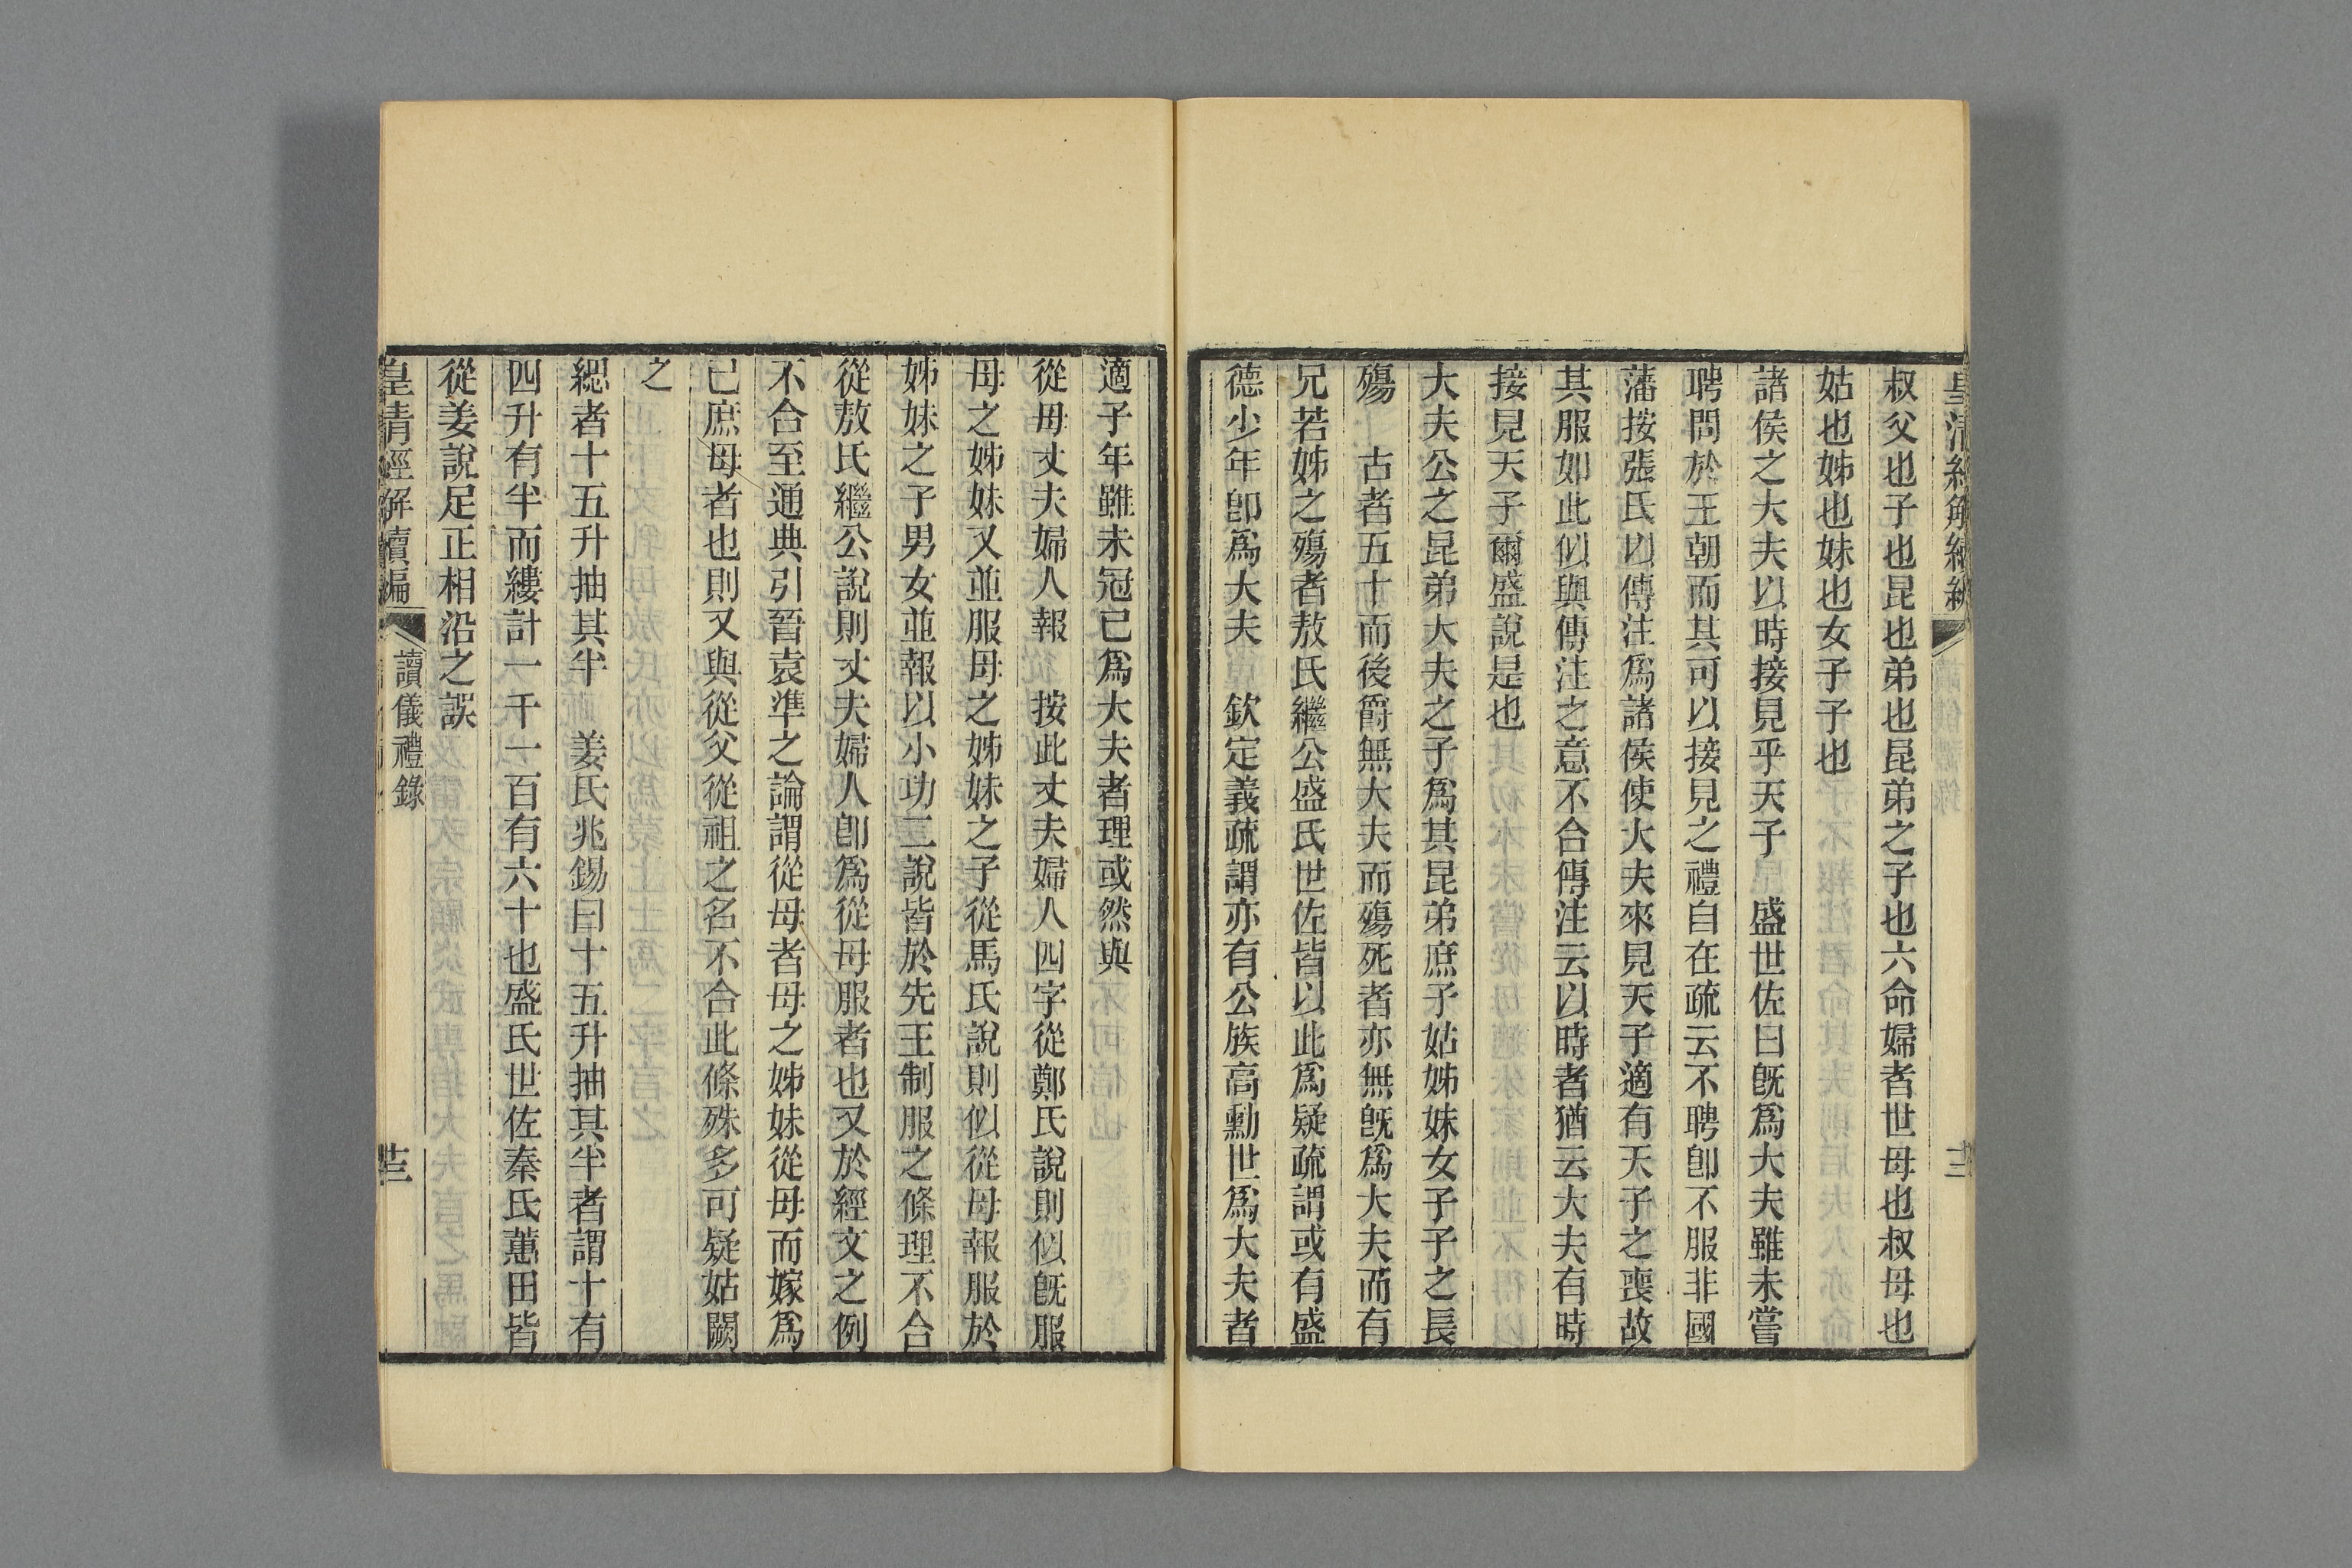 叔父也子也昆也弟也昆弟之子也六命婦者世母也叔母也
姑也姊也妹也女子子也
諸侯之大夫以時接見乎天子　盛世佐曰旣爲大夫雖未嘗
聘問於王朝而其可以接見之禮自在疏云不聘卽不服非國
藩按張氏以傳注爲諸侯使大夫來見天子適有天子之喪故
其服如此似與傳注之意不合傳注云以時者猶云大夫有時
接見天子爾盛說是也
大夫公之昆弟大夫之子爲其昆弟庶子姑姊妹女子子之長
殤　古者五十而後爵無大夫而殤死者亦無旣爲大夫而有
兄若姊之殤者敖氏繼公盛氏世佐皆以此爲疑疏謂或有盛
德少年卽爲大夫　欽定義疏謂亦有公族高勳世爲大夫者
適子年雖未冠已爲大夫者理或然與
從母丈夫婦人報　按此丈夫婦人四字從鄭氏說則似旣服
母之姊妹又並服母之姊妹之子從馬氏說則似從母報服於
姊妹之子男女並報以小功二說皆於先王制服之條理不合
從敖氏繼公說則丈夫婦人卽爲從母服者也又於經文之例
不合至通典引晉袁準之論謂從母者母之姊妹從母而嫁爲
己庶母者也則又與從父從祖之名不合此條殊多可疑姑闕
之
緦者十五升抽其半　姜氏兆錫曰十五升抽其半者謂十有
四升有半而縷計一千一百有六十也盛氏世佐秦氏蕙田皆
從姜說足正相沿之誤
皇清經解續編　讀儀禮錄　十三